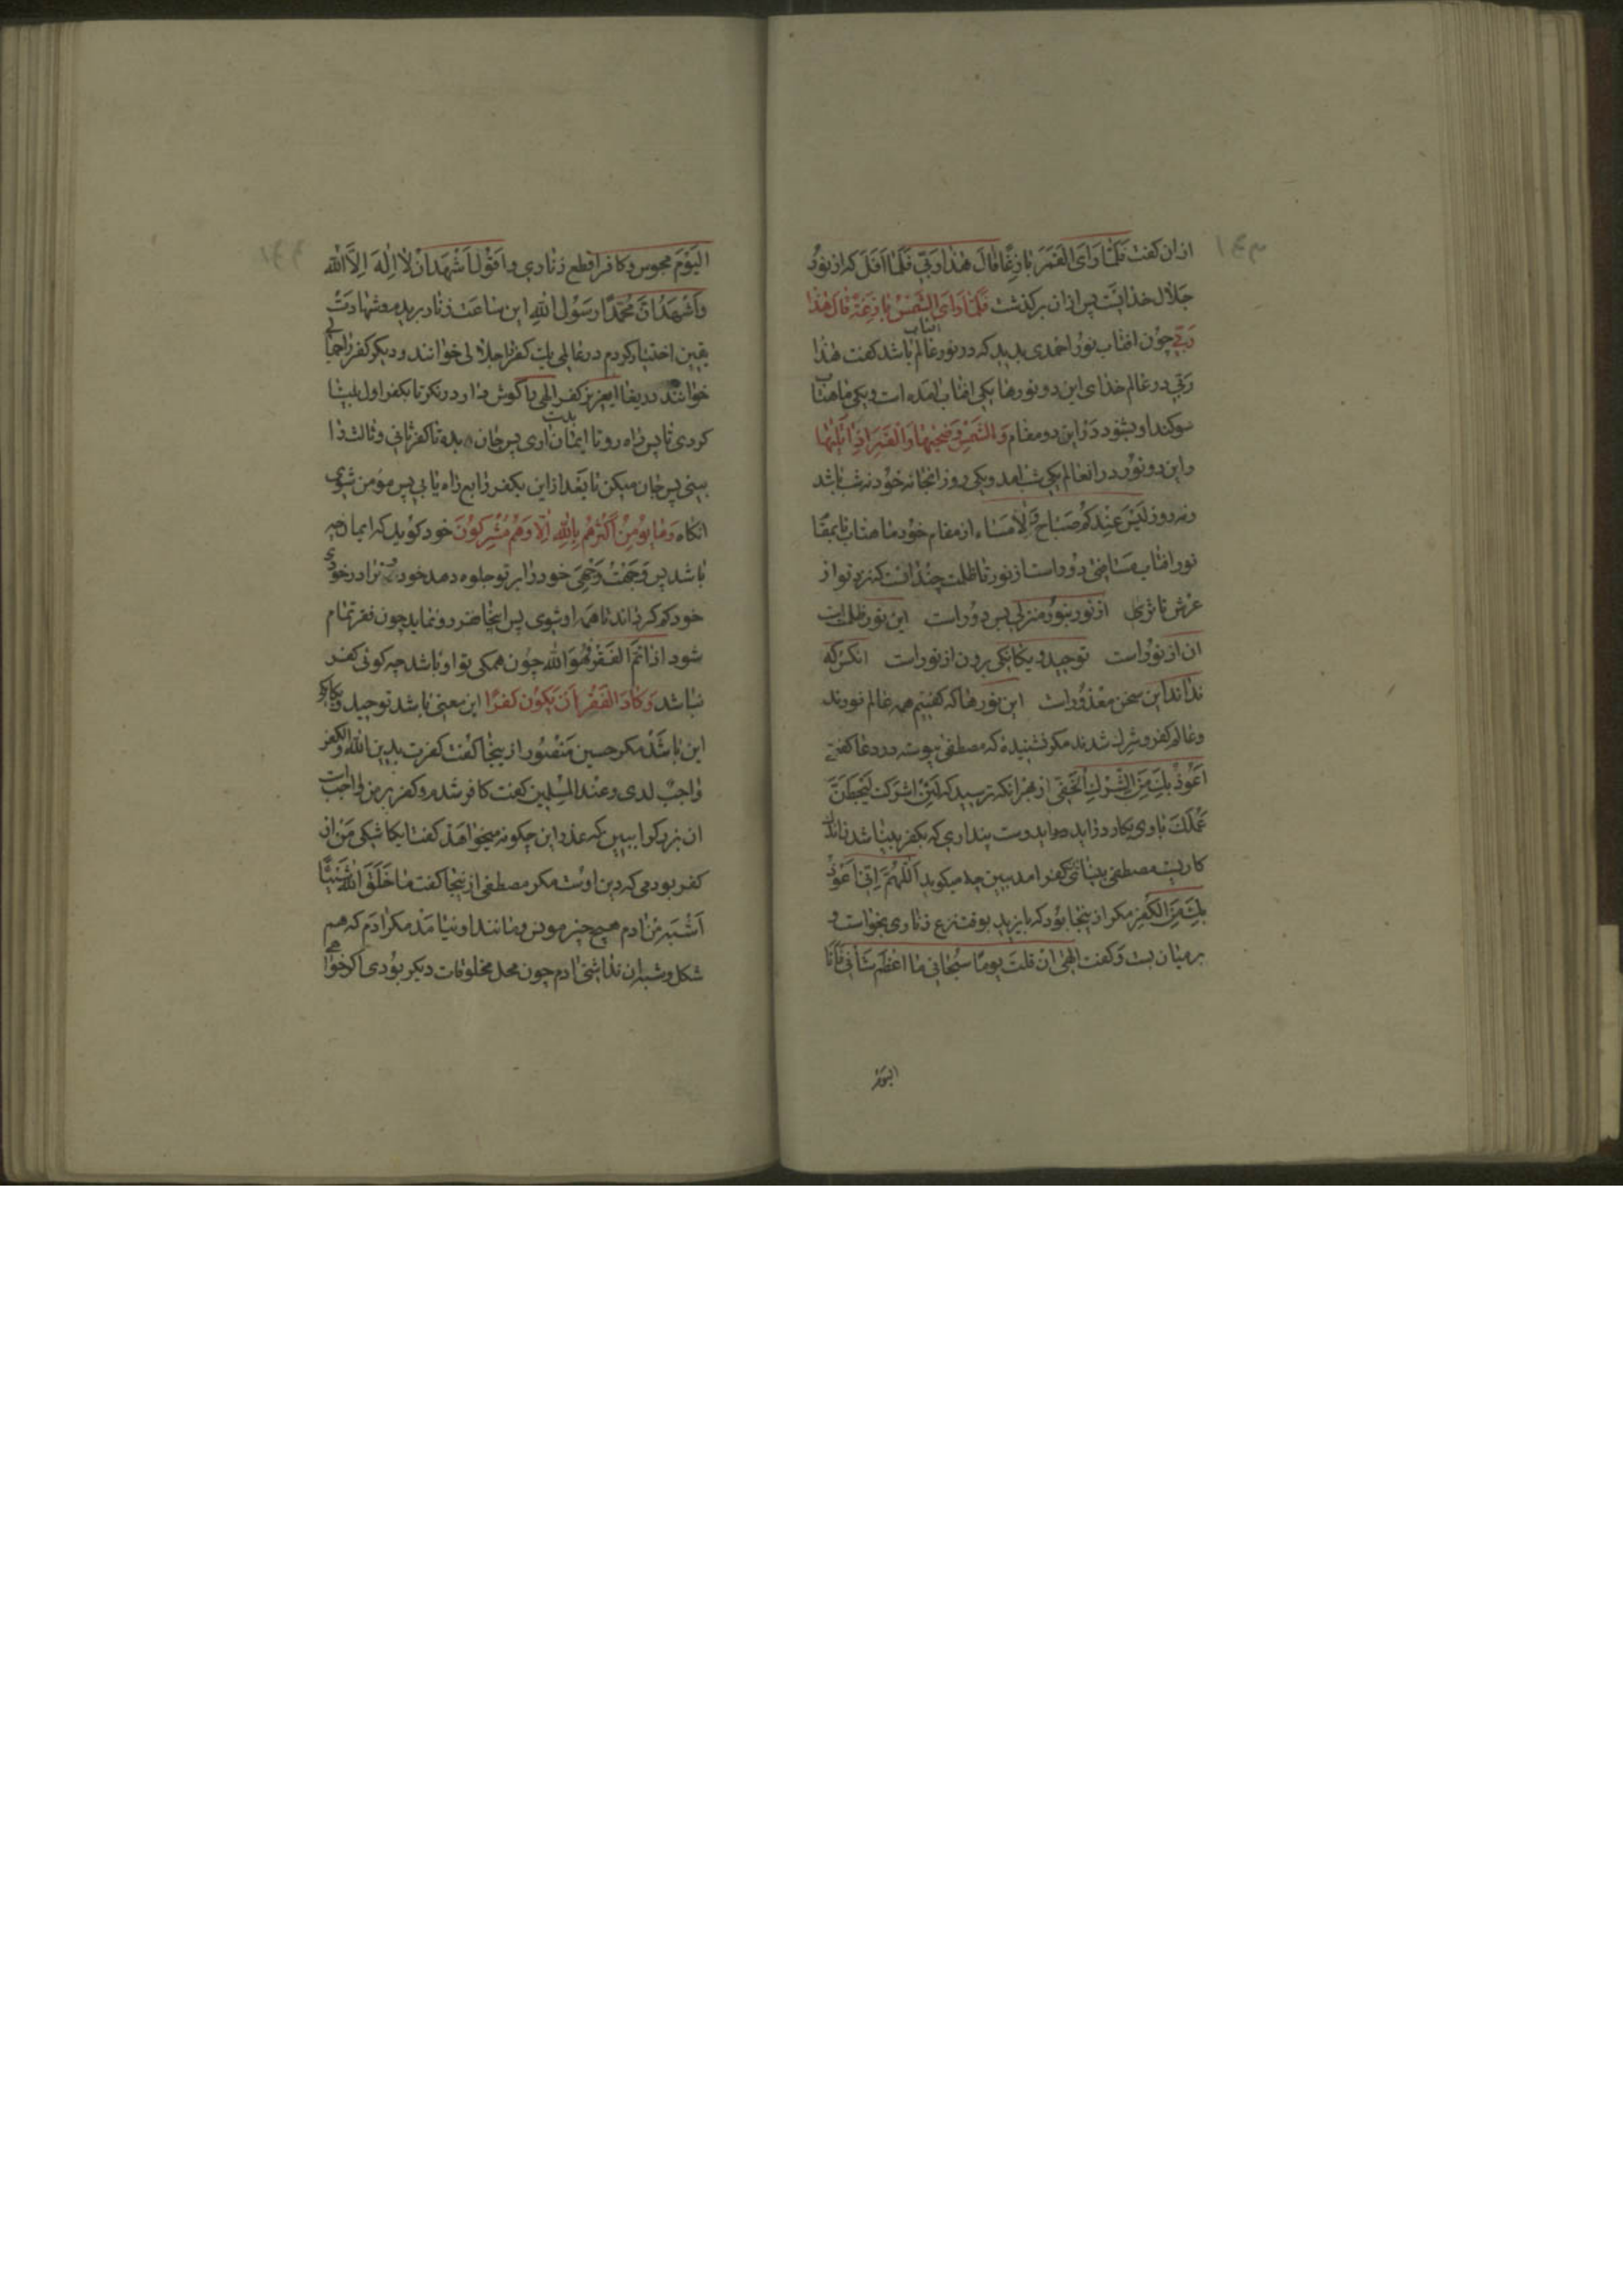 ازان کفت فَلَمَّا رَاَی القَمَرَ بَازِغًا قَالَ هٰذا رَبّی فَلَمَّا اَفَلَ که از نورُ
جَلال خدا پس ازان برکذشت فَلَمَّا رَاَی الشَّمْسَ بَازِغَةً قالَ هٰذا
رَبّی چون افتاب نور احمدی بدید که در نور عالم باشد کفت هٰذا
رَبّی در عالم خدای این دو نورها یکی افتاب امده است و یکی ماهتاب
سوکند او بشنود در این دو مقام وَالشَّمْسِ وَضُحٰیهَا وَالقَمَرِ اِذا تَلٰیهَا
و این دو نور در انعالم یکی شب امد و یکی روز انجا نه خود نه شب باشد
و نه روز لَیْسَ عِنْدَکُم صَبَاح وَلا مَسَاء از مقام خود ماهتاب تا بمقا
نور افتاب مسافتی دور است از نور تا ظلمت چندانست که زیر تو از
عرش تا ثری از نور بنور منزلی بس دور است این نور ظلمت است
ان از نور است توحید و یکانکی برون از نور است انکس که
نداند این سخن معذور است این نورها که کفتیم همه عالم نورند
و عالم کفر و شرک شدند مکر نشنیدهٔ که مصطفی پیوسته در دعا کفتی
اَعُوذُ بِكَ مِنَ الشِّرْكِ الخَفِی از بهر انکه ترسید که لَئِنْ اَشْرَكتَ لَیَحْبَطَنَّ
عَمَلُكَ با وی بکار در اید ای دوست پنداری که بکفر بینا شدن اندک
کاریست مصطفی بینای کفر امد ببین چه میکوید اَللّٰهُمَّ اِنّی اَعُوذُ
بِكَ مِنَ الکُفرِ مکر از ینجا بود که بایزید بوقت نزع زناری بخواست و
بر میان بست و کفت الهی ان قلت یومًا سبحانی ما اعظم شانی فانا
الیوم
الیَوْمَ مجوس و کافر اقطع زناری و اَقُول اَشْهَدُ اَنْ لا اِلٰهَ اِلَّا الله
وَاَشْهَدُ اَنَّ مُحَمَّدًا رَسُولُ اللهِ این ساعت زنار بریدم و شهادت
یقین اختیار کردم در عالمی یک کفر را جلالی خوانند و دیکر کفر را جمالی
خوانند دریغا ایعزیز کفر الهی را کوش دار و درنکر تا بکفر اول بینا
کردی تا پس راه رو تا ایمان بدست اری پس جان بده تا کفر ثانی و ثالث را
بینی پس جان میکن تا بعد از این بکفر رابع راه یابی پس مومن شوی
انکاه وَمَا یُومِنُ اَکْثَرُهُم بِاللهِ اِلّا وَهُم مُشْرِکُونَ خود کوید که ایمان چه
باشد پس وَجَّهْتُ وَجْهِیَ خود را بر تو جلوه دهد خودی ترا در خودی
خود کم کرداند تا همه او شوی پس اینجا فقر رو نماید چون فقر تمام
شود اذا تمّ الفقر فهو الله چون همکی تو او باشد چه کوئی کفر
نباشد وَکَادَ الفَقْرُ اَنْ یَکُونَ کفرًا این معنی باشد توحید و یکانکی
این باشد مکر حسین منصور از ینجا کفت کفرت بدین الله والکفر
واجب لدی وعند المسلمین کفت کافر شدم و کفر بر من واجب است
ان بزرکوار ببین که عذر این چکونه میخواهد کفت ایکاشکی من ان
کفر بودمی که دین اوست مکر مصطفی از ینجا کفت مَا خَلَقَ اللهُ شَیْئًا
اَشْبَهَ مِنْ ادم هیچ چیز مونس و مانند او نیامد مکر ادم که هم
شکل و شبه ان نداشتی ادم چون محل مخلوقات دیکر بودی اکر خواهی